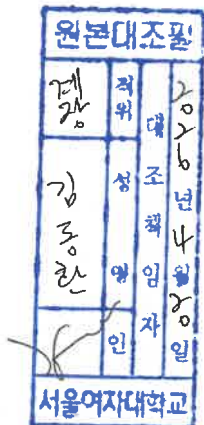 원본대조필
2026년 4월 20일
대조책임자
직위
계장
성명
김동환
인
서울여자대학교